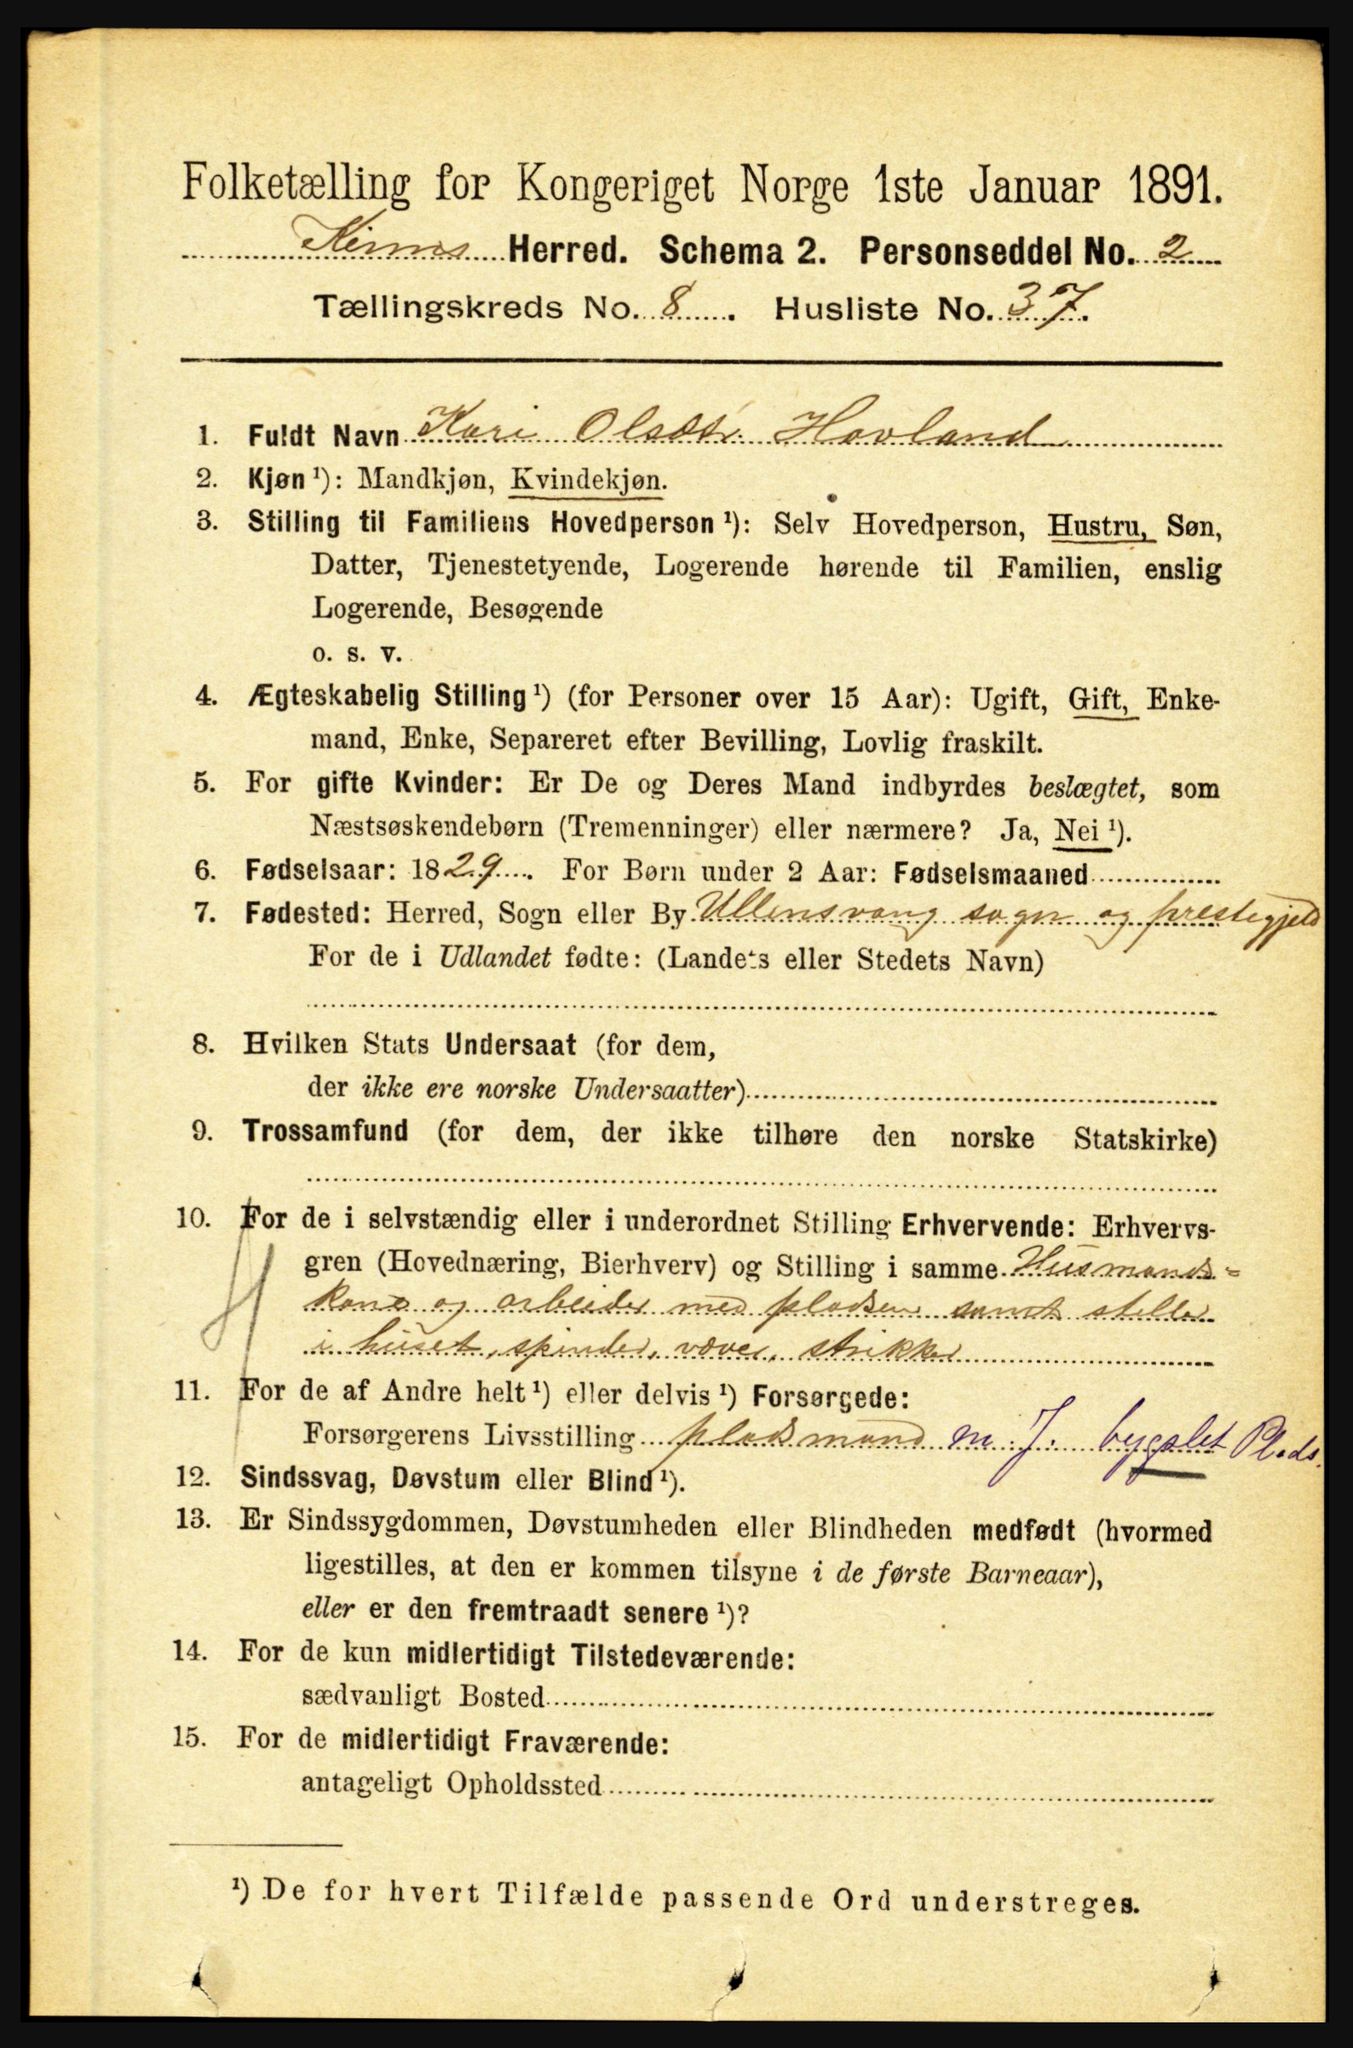 Folketælling for Kongeriget Norge 1ste Januar 1891.
Kinns Herred. Schema 2. Personseddel No. 2
Tællingskreds No. 8. Husliste No. 37.
1. Fuldt Navn Kari Olsdtr. Hovland
2. Kjøn ¹): Mandkjøn, Kvindekjøn.
3. Stilling til Familiens Hovedperson ¹): Selv Hovedperson, Hustru, Søn,
Datter, Tjenestetyende, Logerende hørende til Familien, enslig
Logerende, Besøgende
o. s. v.
4. Ægteskabelig Stilling ¹) (for Personer over 15 Aar): Ugift, Gift, Enke-
mand, Enke, Separeret efter Bevilling, Lovlig fraskilt.
5. For gifte Kvinder: Er De og Deres Mand indbyrdes beslægtet, som
Næstsøskendebørn (Tremenninger) eller nærmere? Ja, Nei ¹).
6. Fødselsaar: 1829. For Børn under 2 Aar: Fødselsmaaned
7. Fødested: Herred, Sogn eller By Ullensvang sogn og prestegjeld
For de i Udlandet fødte: (Landets eller Stedets Navn)
8. Hvilken Stats Undersaat (for dem,
der ikke ere norske Undersaatter)
9. Trossamfund (for dem, der ikke tilhøre den norske Statskirke)
10. For de i selvstændig eller i underordnet Stilling Erhvervende: Erhvervs-
gren (Hovednæring, Bierhverv) og Stilling i samme Husmands-
kone og arbeider med pladsen samt steller
i huset, spinder, væver, strikker
11. For de af Andre helt ¹) eller delvis ¹) Forsørgede:
Forsørgerens Livsstilling pladsmand m. J. bygslet Plads.
12. Sindssvag, Døvstum eller Blind ¹).
13. Er Sindssygdommen, Døvstumheden eller Blindheden medfødt (hvormed
ligestilles, at den er kommen tilsyne i de første Barneaar),
eller er den fremtraadt senere ¹)?
14. For de kun midlertidigt Tilstedeværende:
sædvanligt Bosted
15. For de midlertidigt Fraværende:
antageligt Opholdssted
¹) De for hvert Tilfælde passende Ord understreges.